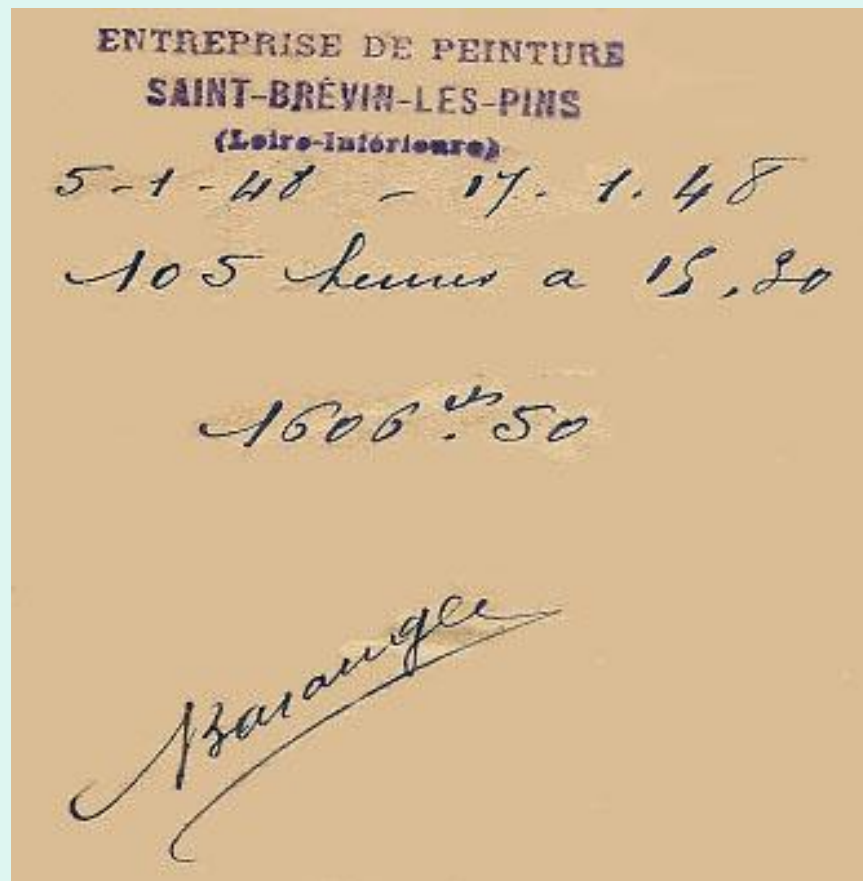 ENTREPRISE DE PEINTURE
SAINT-BRÉVIN-LES-PINS
(Loire-Inférieure)
5-1-48 - 17.1.48
105 heures a 15,30
1606 50
Baranger